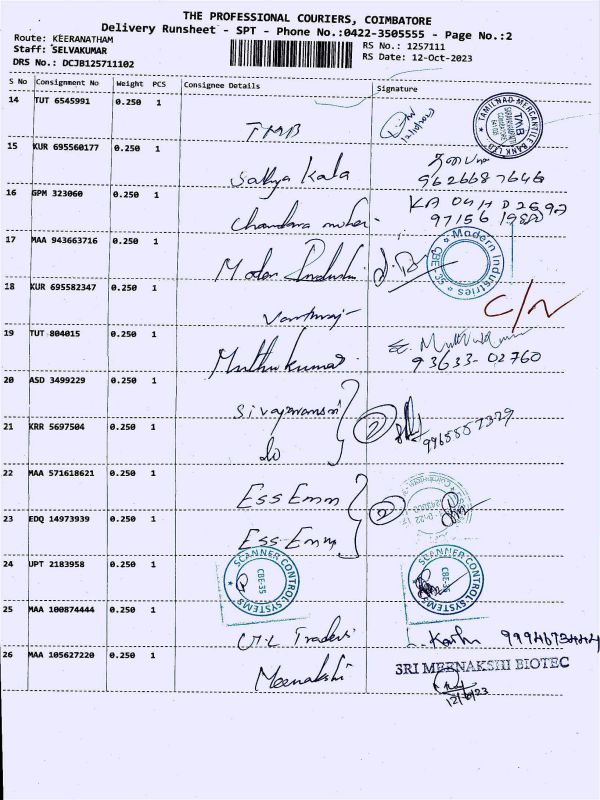 THE PROFESSIONAL COURIERS, COIMBATORE
Delivery Runsheet - SPT - Phone No.:0422-3505555 - Page No.:2
Route: KEERANATHAM
RS No.: 1257111
Staff: SELVAKUMAR
RS Date: 12-Oct-2023
DRS No.: DCJB125711102
S No Consignment No Weight PCS Consignee Details Signature
14 TUT 6545991 0.250 1
TMB
TAMILNAD MERCANTILE BANK LTD
TMB
15 KUR 695560177 0.250 1
Sathya Kala
9626687646
16 GPM 323060 0.250 1
Chandra
KA 04 H D 2692
97156
17 MAA 943663716 0.250 1
Modern Industries
CBE-35
18 KUR 695582347 0.250 1
C/N
19 TUT 804015 0.250 1
Muthu kumar
93633-02760
20 ASD 3499229 0.250 1
2
21 KRR 5697504 0.250 1
do
9965557329
22 MAA 571618621 0.250 1
Ess Emm
2
23 EDQ 14973939 0.250 1
Ess Emm
24 UPT 2183958 0.250 1
SCANNER CONTROL SYSTEMS
CBE-35
SCANNER CONTROL SYSTEMS
CBE-35
25 MAA 100874444 0.250 1
Traders
26 MAA 105627220 0.250 1
Meenakshi
SRI MEENAKSHI BIOTEC